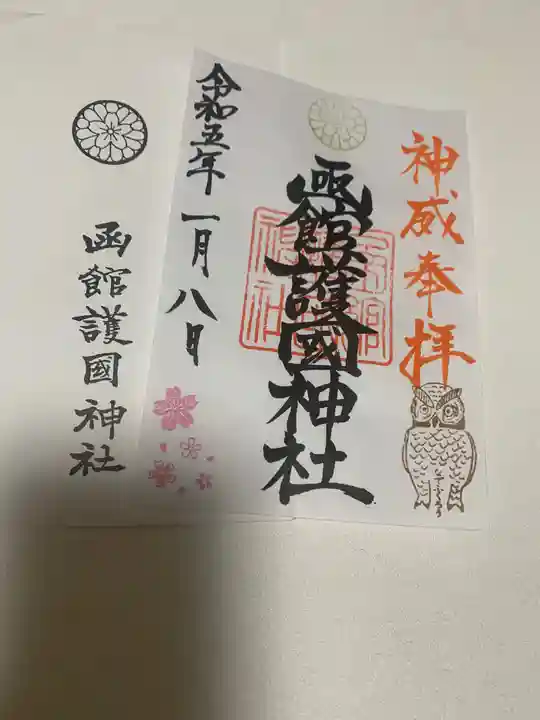 神威奉拝
函館護國神社
令和五年一月八日
函館護國神社
なでふくろう